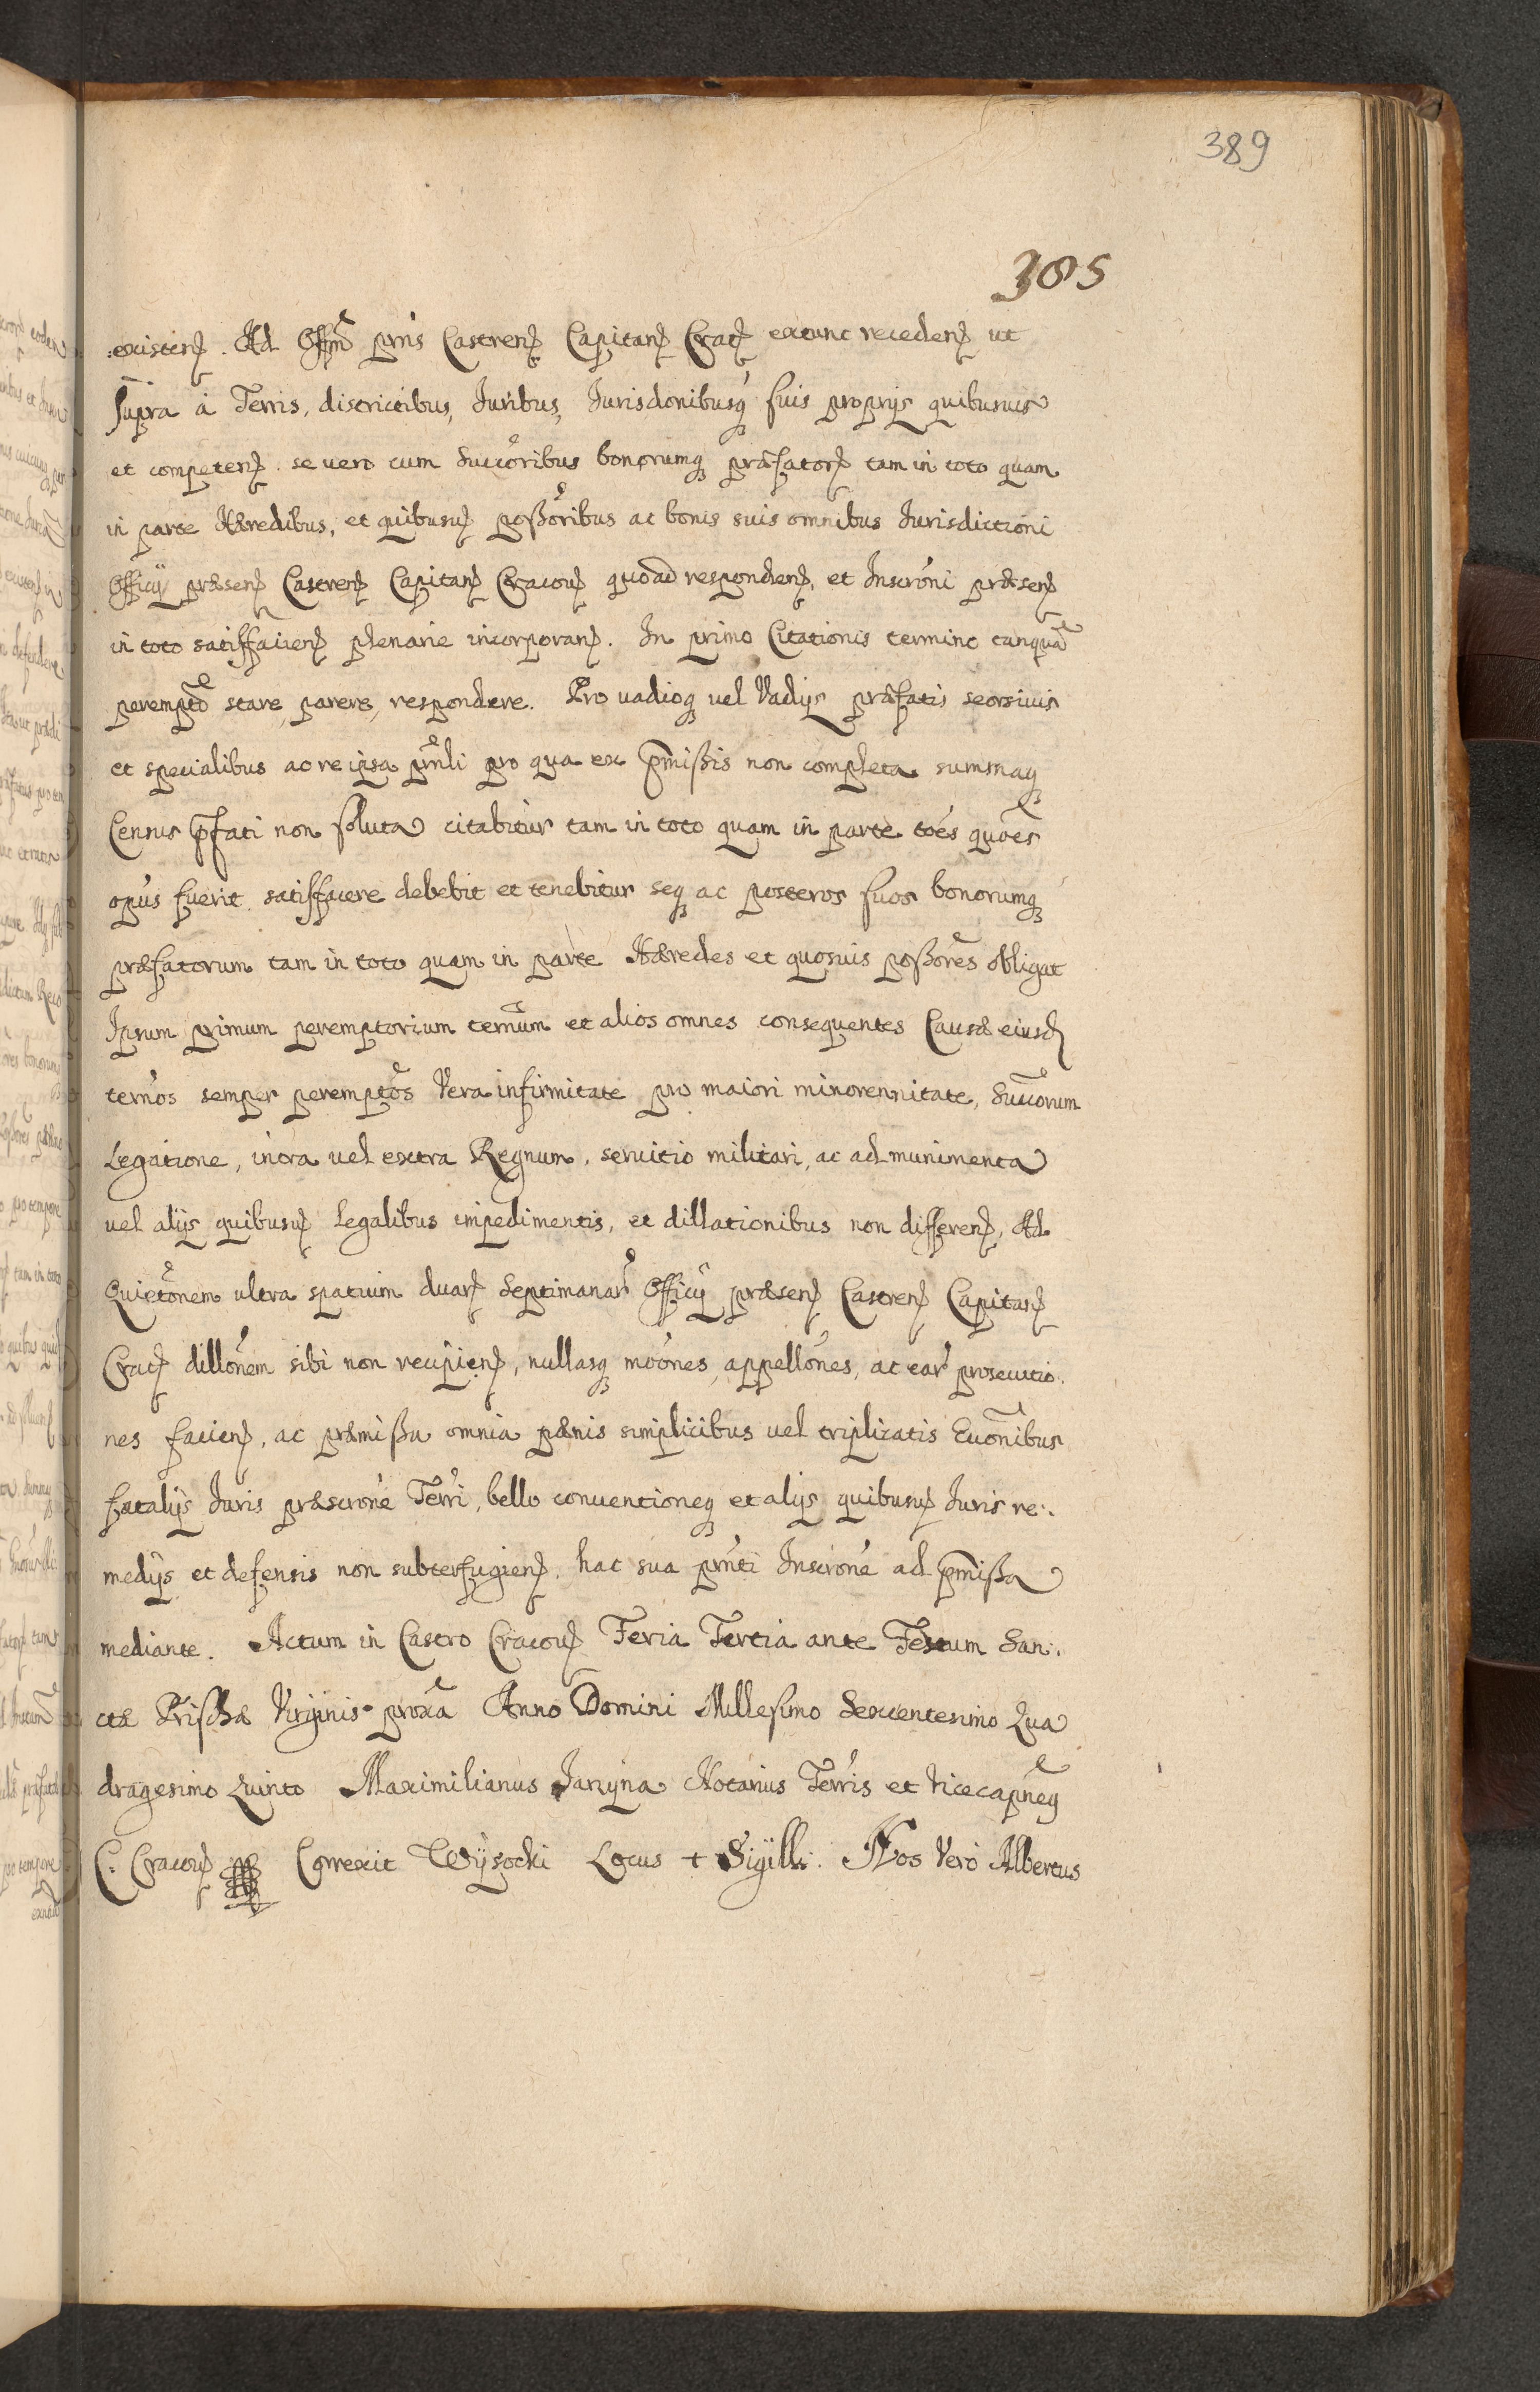 389
305
existen. Ad Offm pnis Castren Capitan Crac extunc receden ut
supra à Terris, districtibus, Iuribus, Iurisdonibusq suis proprys quibusuis
et competen. se uero cum Succoribus bonorumq præfator tam in toto quam
in parte Hæredibus, et quibusuis possoribus ac bonis suis omnibus Iurisdictioni
Officij præsen Castren Capitan Cracou quoad responden, et Inscrôni præsen
in toto satisfacien plenarie incorporan. In primo Citationis termino tanquā
perempto stare, parere, respondere. Pro uadioq uel Vadys præfatis seorsiuis
et specialibus ac re ipsa prnli pro qua ex pmissis non completa summaq
Census pfati non soluta citabitur tam in toto quam in parte toés quoés
opus fuerit satisfacere debebit et tenebitur seq ac posteros suos bonorumq
præfatorum tam in toto quam in parte Hæredes et quosuis possores obligat
Ipsum primum peremptorium ternum et alios omnes consequentes Causæ eiusd
ternos semper peremptos Vera infirmitate pro maiori minorennitate, Succorum
Legatione, intra uel extra Regnum, seruitio militari, ac ad munimenta
uel alijs quibusuis Legalibus impedimentis, et dillationibus non differen, Ad
Quietonem ultra spatium duar Septimanar Officij præsen Castren Capitan
Crac dillonem sibi non recipien, nullasq moônes, appellônes, ac ear prosecutio.
nes facien, ac præmissa omnia pænis simplicibus uel triplicatis Euonibus
fatalijs Iuris præscrône Terri, bello conuentioneq et alijs quibusuis Iuris re:.
medijs et defensis non subterfugien. hac sua pnti Inscrône ad pmissa
mediante. Actum in Castro Cracou Feria Tertia ante Festum San:.
ctæ Priscæ Virginis proxā Anno Domini Millesimo Sexcentesimo Qua
dragesimo Quinto Maximilianus Jarzyna Notarius Terris et Vicecapneq
C. Cracou Correxit Wysocki Locus + Sigilli. Nos Vero Albertus